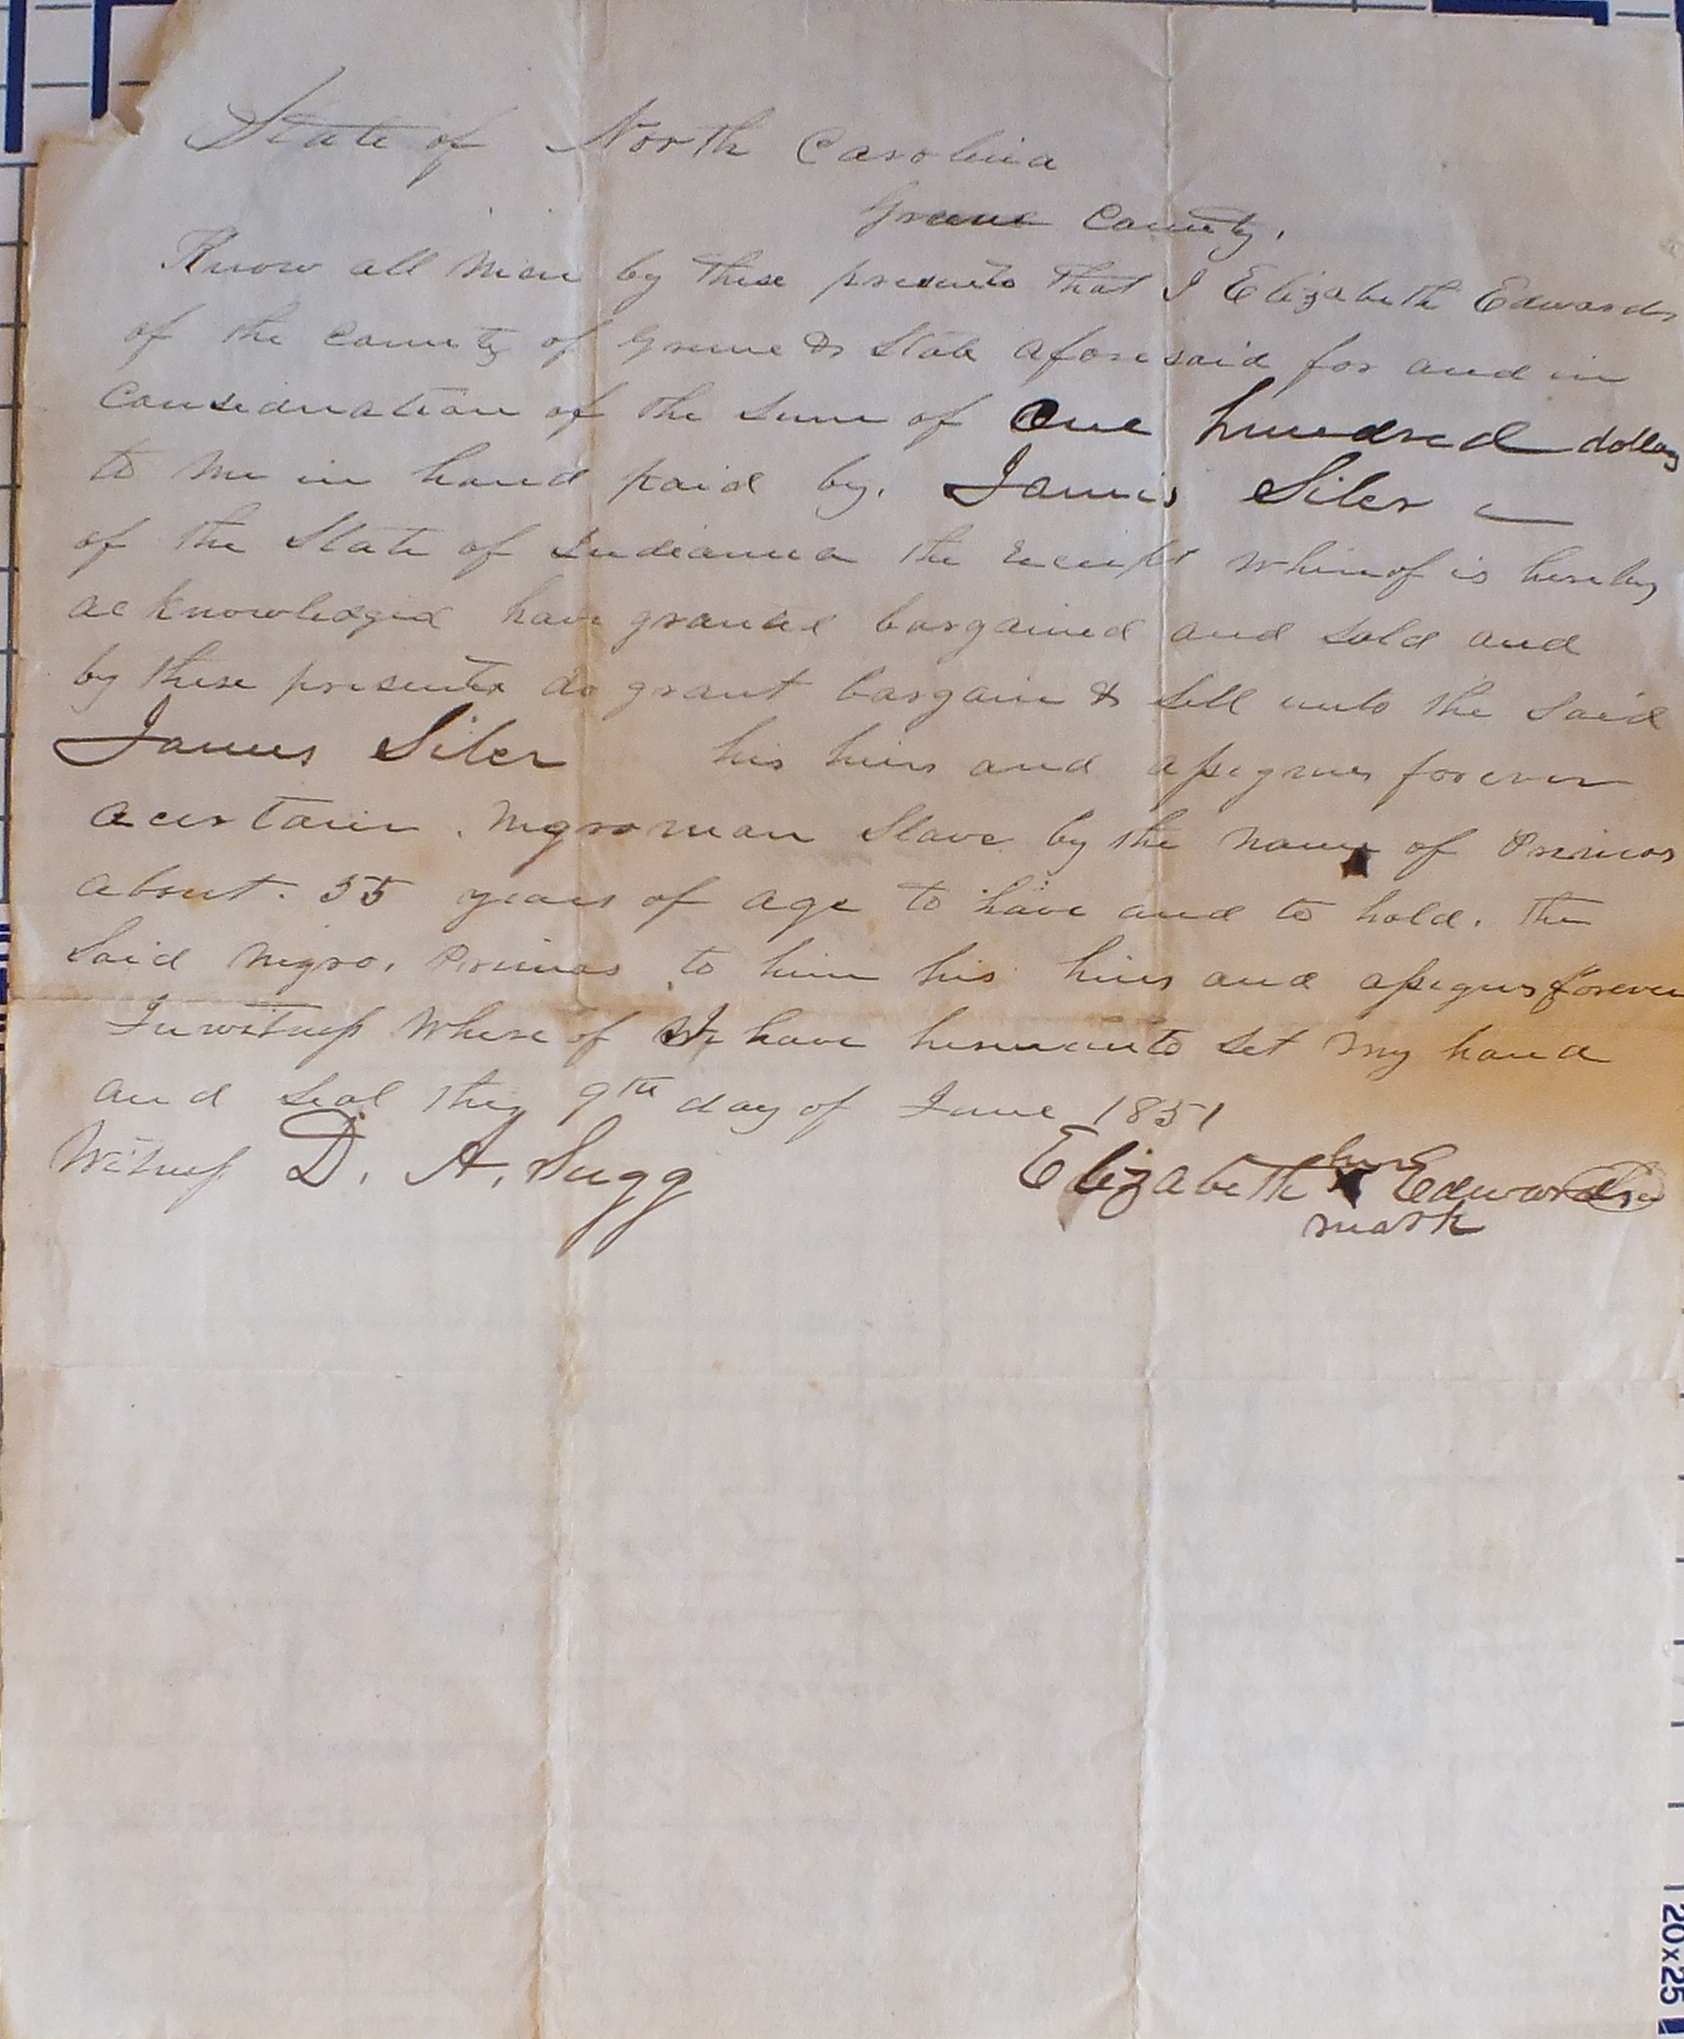 State of North Carolina
Greene County.
Know all men by these presents that I Elizabeth Edwards
of the county of Greene & State aforesaid for and in
consideration of the sum of One hundred dollars
to me in hand paid by. James Siler
of the State of Indianna the receipt whereof is hereby
acknowledged have granted bargained and sold and
by these presents do grant bargain & sell unto the said
James Siler his heirs and assignes forever
a certain negro man Slave by the name of Primas
about. 55 years of age to have and to hold. The
said negro. Primas to him his heirs and assigns forever
In witness where of I have hereunto set my hand
and seal this 9th day of June 1851
Witness D. A. Sugg
Elizabeth her X Edwards
mark
20x25